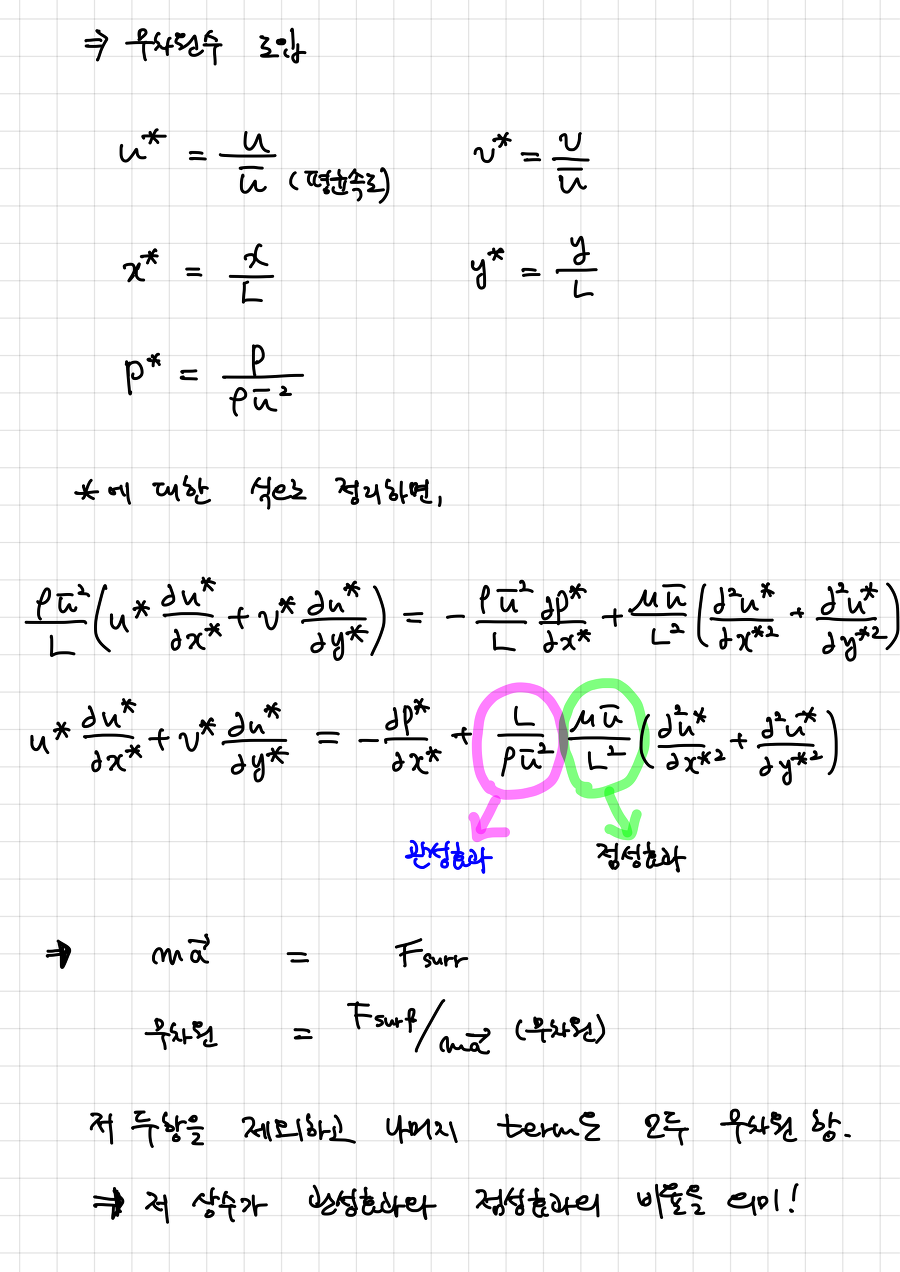 ⇒ 무차원수 도입
u* = u / ū (평균속도)    v* = v / ū
x* = x / L    y* = y / L
p* = p / ρū²
*에 대한 식으로 정리하면,
ρū²/L (u* ∂u*/∂x* + v* ∂u*/∂y*) = - ρū²/L ∂p*/∂x* + μū/L² (∂²u*/∂x*² + ∂²u*/∂y*²)
u* ∂u*/∂x* + v* ∂u*/∂y* = - ∂p*/∂x* + L/ρū² μū/L² (∂²u*/∂x*² + ∂²u*/∂y*²)
관성효과    점성효과
⇒ ma⃗ = Fsurr
무차원 = Fsurf/ma⃗ (무차원)
저 두항을 제외하고 나머지 term은 모두 무차원 항.
⇒ 저 상수가 관성효과와 점성효과의 비율을 의미!